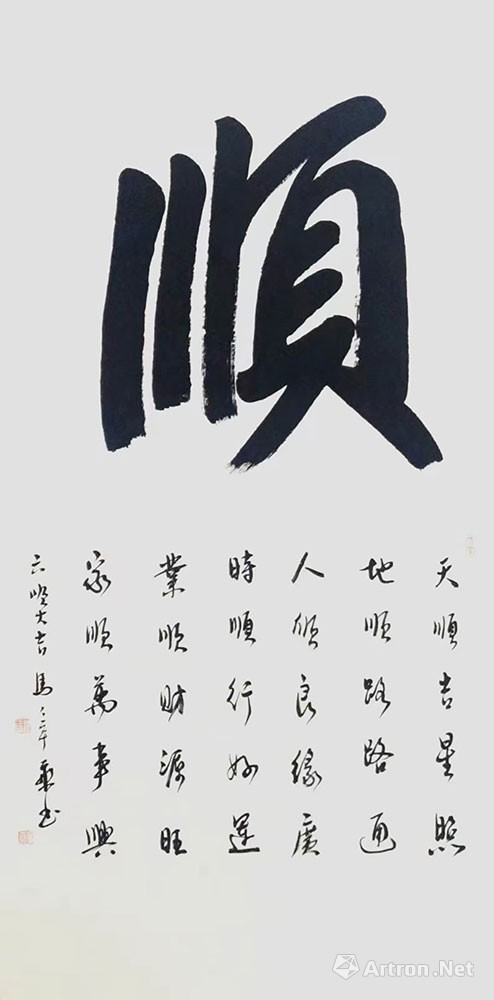 順
天順吉星照
地順路路通
人順良緣廣
時順行好運
業順財源旺
家順萬事興
六順大吉 馬 書
Artron.Net